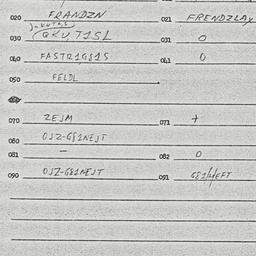 020 FRANDZN 021 FRENDZLAY
030 (QKUTJSL 031 0
040 FASTR1G81S 041 0
050 FELDL
070 ZEJM 071 +
080 OJZ-G81NEJT
081 - 082 0
090 OJZ-G81NEJT 091